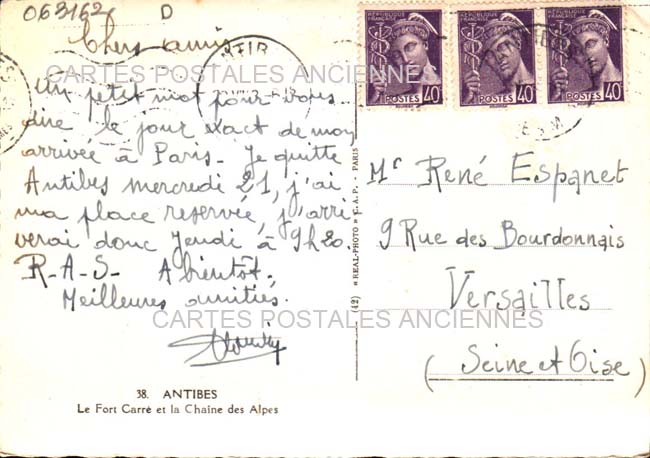 063162 D
Chers amis
Un petit mot pour vous
dire le jour exact de mon
arrivée à Paris - Je quitte
Antibes mercredi 21, j'ai
ma place reservée, j'arri
verai donc Jeudi à 9h20.
R-A-S- A bientôt.
Meilleures amitiés.
CARTES POSTALES ANCIENNES
CARTES POSTALES ANCIENNES
38. ANTIBES
Le Fort Carré et la Chaîne des Alpes
(42) « REAL-PHOTO » C.A.P. - PARIS
REPUBLIQUE FRANÇAISE
POSTES 40c
REPUBLIQUE FRANÇAISE
POSTES 40c
REPUBLIQUE FRANÇAISE
POSTES 40c
Mr René Espanet
9 Rue des Bourdonnais
Versailles
(Seine et Oise)